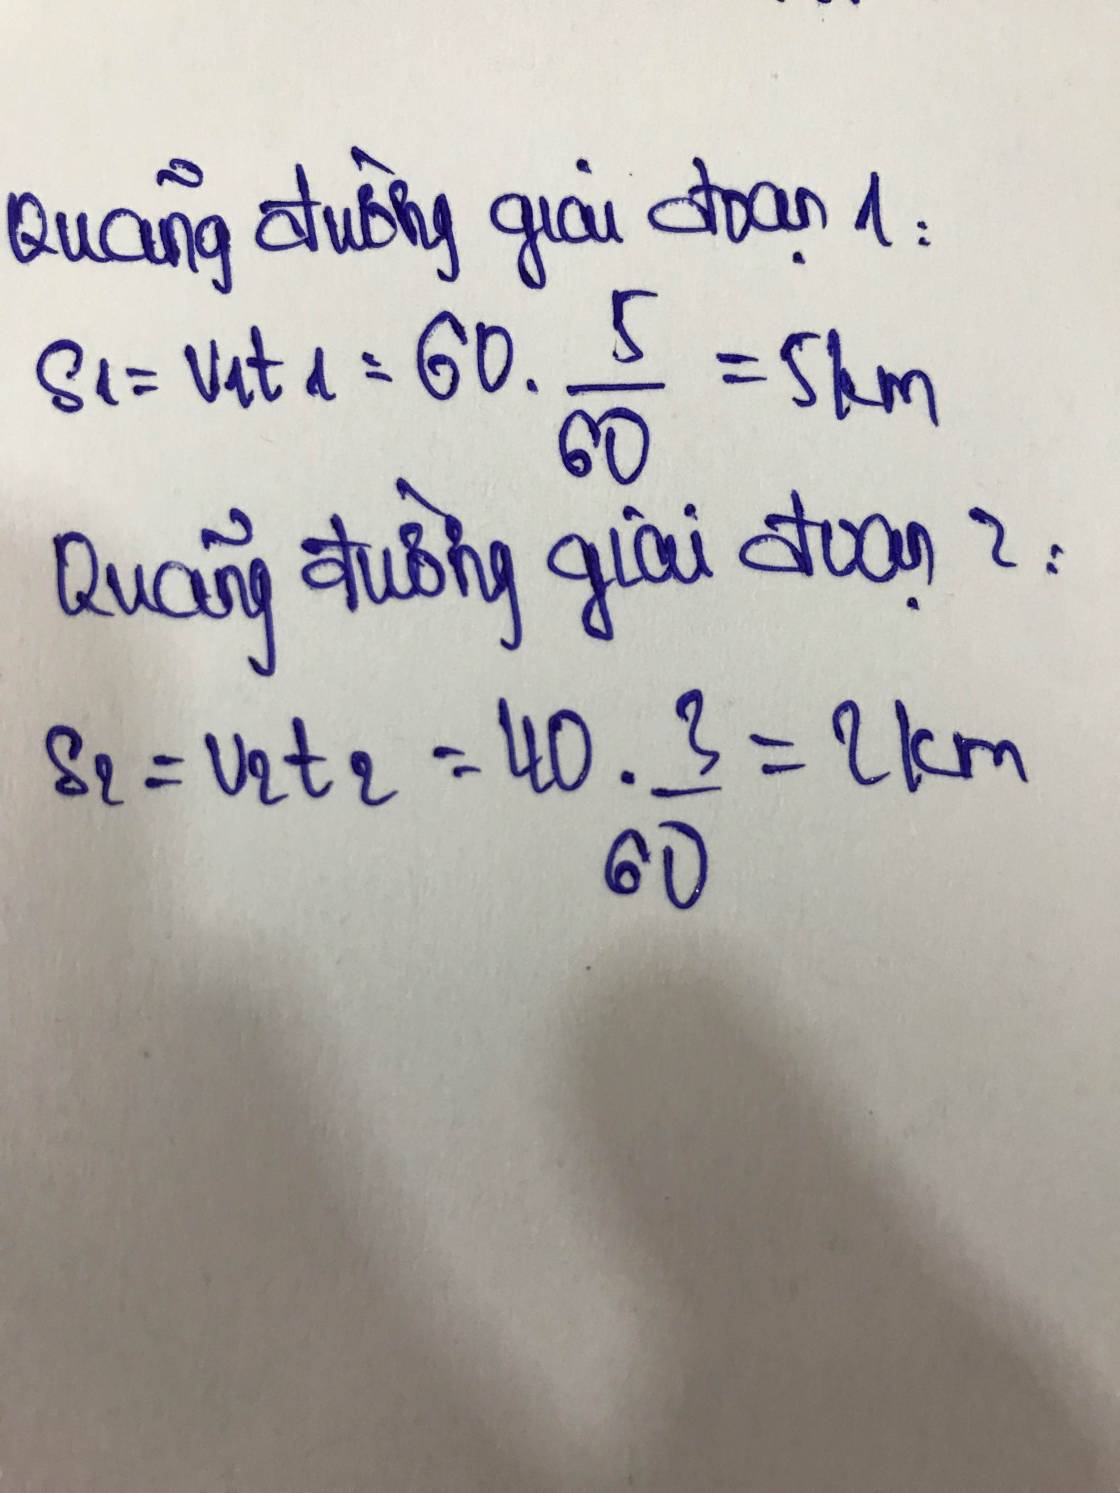 Quãng đường giai đoạn 1:
S1 = V1t1 = 60 . 5/60 = 5km
Quãng đường giai đoạn 2:
S2 = V2t2 = 40 . 3/60 = 2km